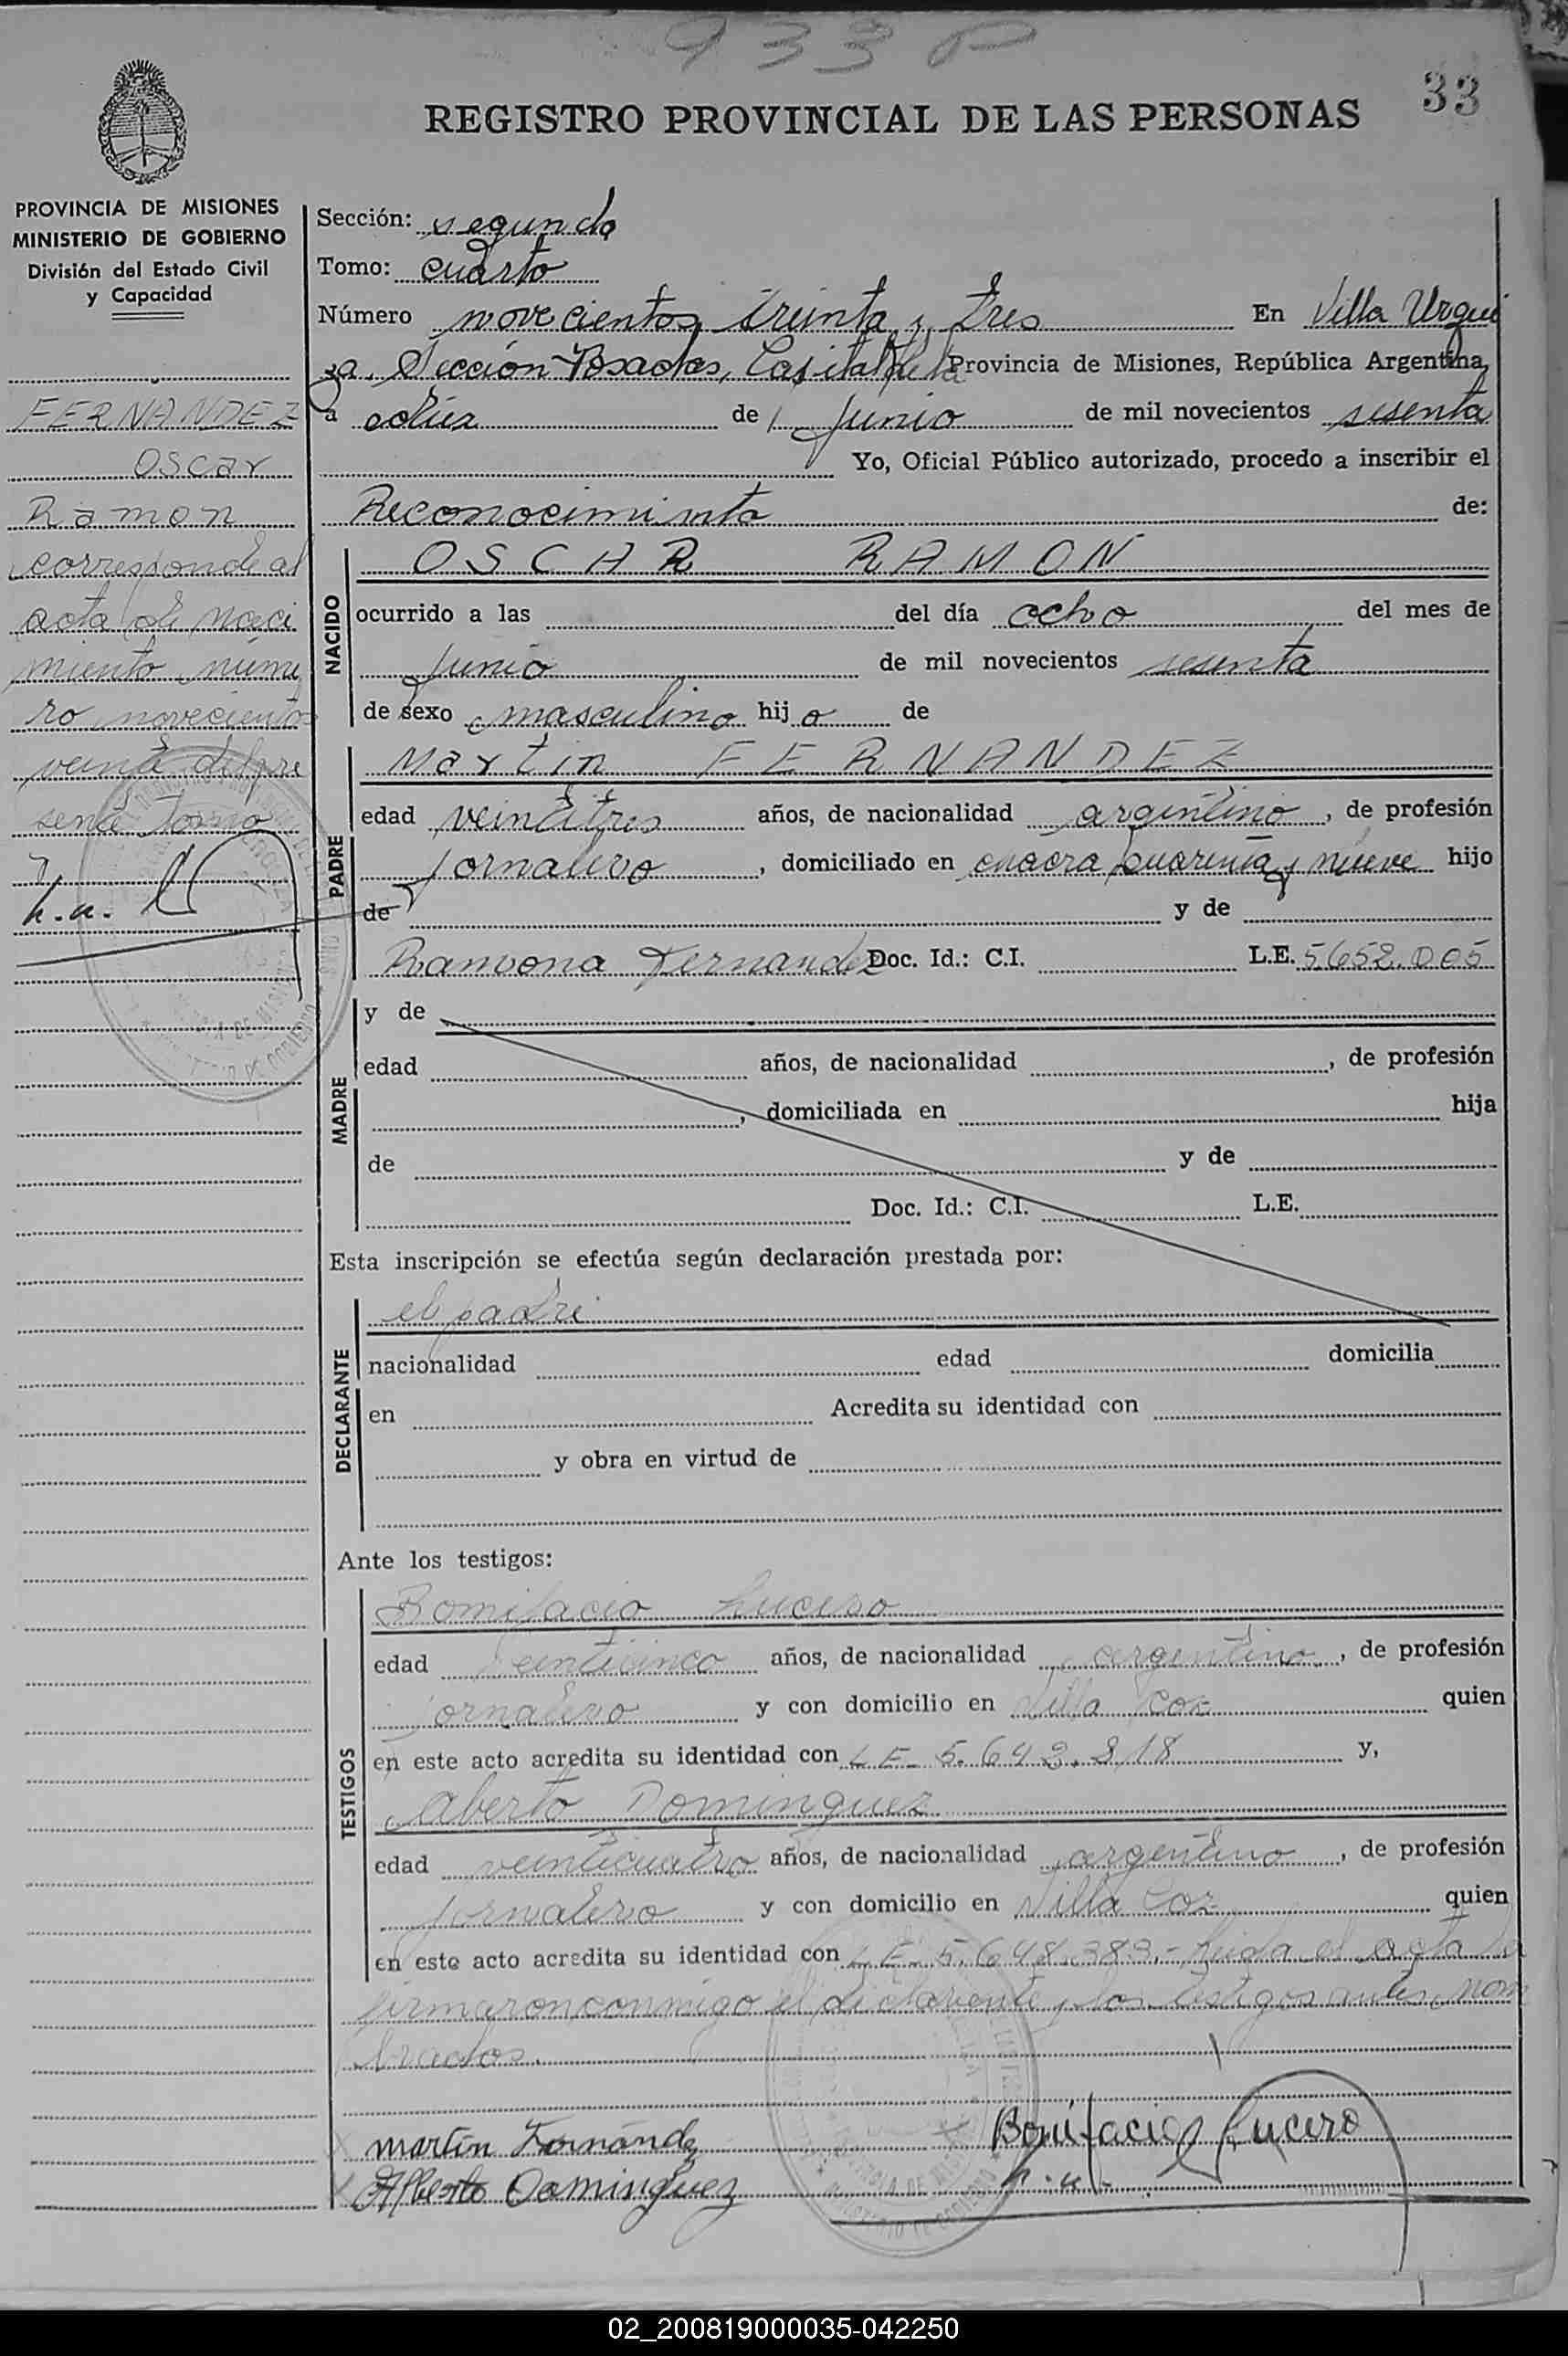 933 P
33
REGISTRO PROVINCIAL DE LAS PERSONAS
PROVINCIA DE MISIONES
MINISTERIO DE GOBIERNO
División del Estado Civil
y Capacidad
FERNANDEZ
Oscar
Ramon
corresponde al
acta de naci
miento núme
ro novecientos
veinte del pre
sente Tomo
h.u.
Sección: segunda
Tomo: cuarto
Número novecientos treinta y tres En Villa Urqui
za, Sección Posadas, Capital de la Provincia de Misiones, República Argentina,
a diez de Junio de mil novecientos sesenta
Yo, Oficial Público autorizado, procedo a inscribir el
Reconocimiento de:
NACIDO
OSCAR RAMON
ocurrido a las del día ocho del mes de
Junio de mil novecientos sesenta
de sexo masculino hijo de
PADRE
Martin FERNANDEZ
edad veintitres años, de nacionalidad argentino, de profesión
jornalero, domiciliado en chacra cuarenta y nueve hijo
de y de
Ramona Fernandez Doc. Id.: C.I. L.E. 5652.005
MADRE
y de
edad años, de nacionalidad , de profesión
, domiciliada en hija
de y de
Doc. Id.: C.I. L.E.
Esta inscripción se efectúa según declaración prestada por:
DECLARANTE
el padre
nacionalidad edad domicilia
en Acredita su identidad con
y obra en virtud de
Ante los testigos:
TESTIGOS
Bonifacio Lucero
edad veinticinco años, de nacionalidad argentino, de profesión
jornalero y con domicilio en Villa Coz quien
en este acto acredita su identidad con L E 5.642.818 y,
Alberto Dominguez
edad veinticuatro años, de nacionalidad argentino, de profesión
jornalero y con domicilio en Villa Coz quien
en este acto acredita su identidad con L E 5.648.383.- Leida el acta la
firmaron conmigo el declarante y los testigos antes nom
brados.
martin Fernández Bonifacio Lucero
Alberto Dominguez h.u.
02_200819000035-042250